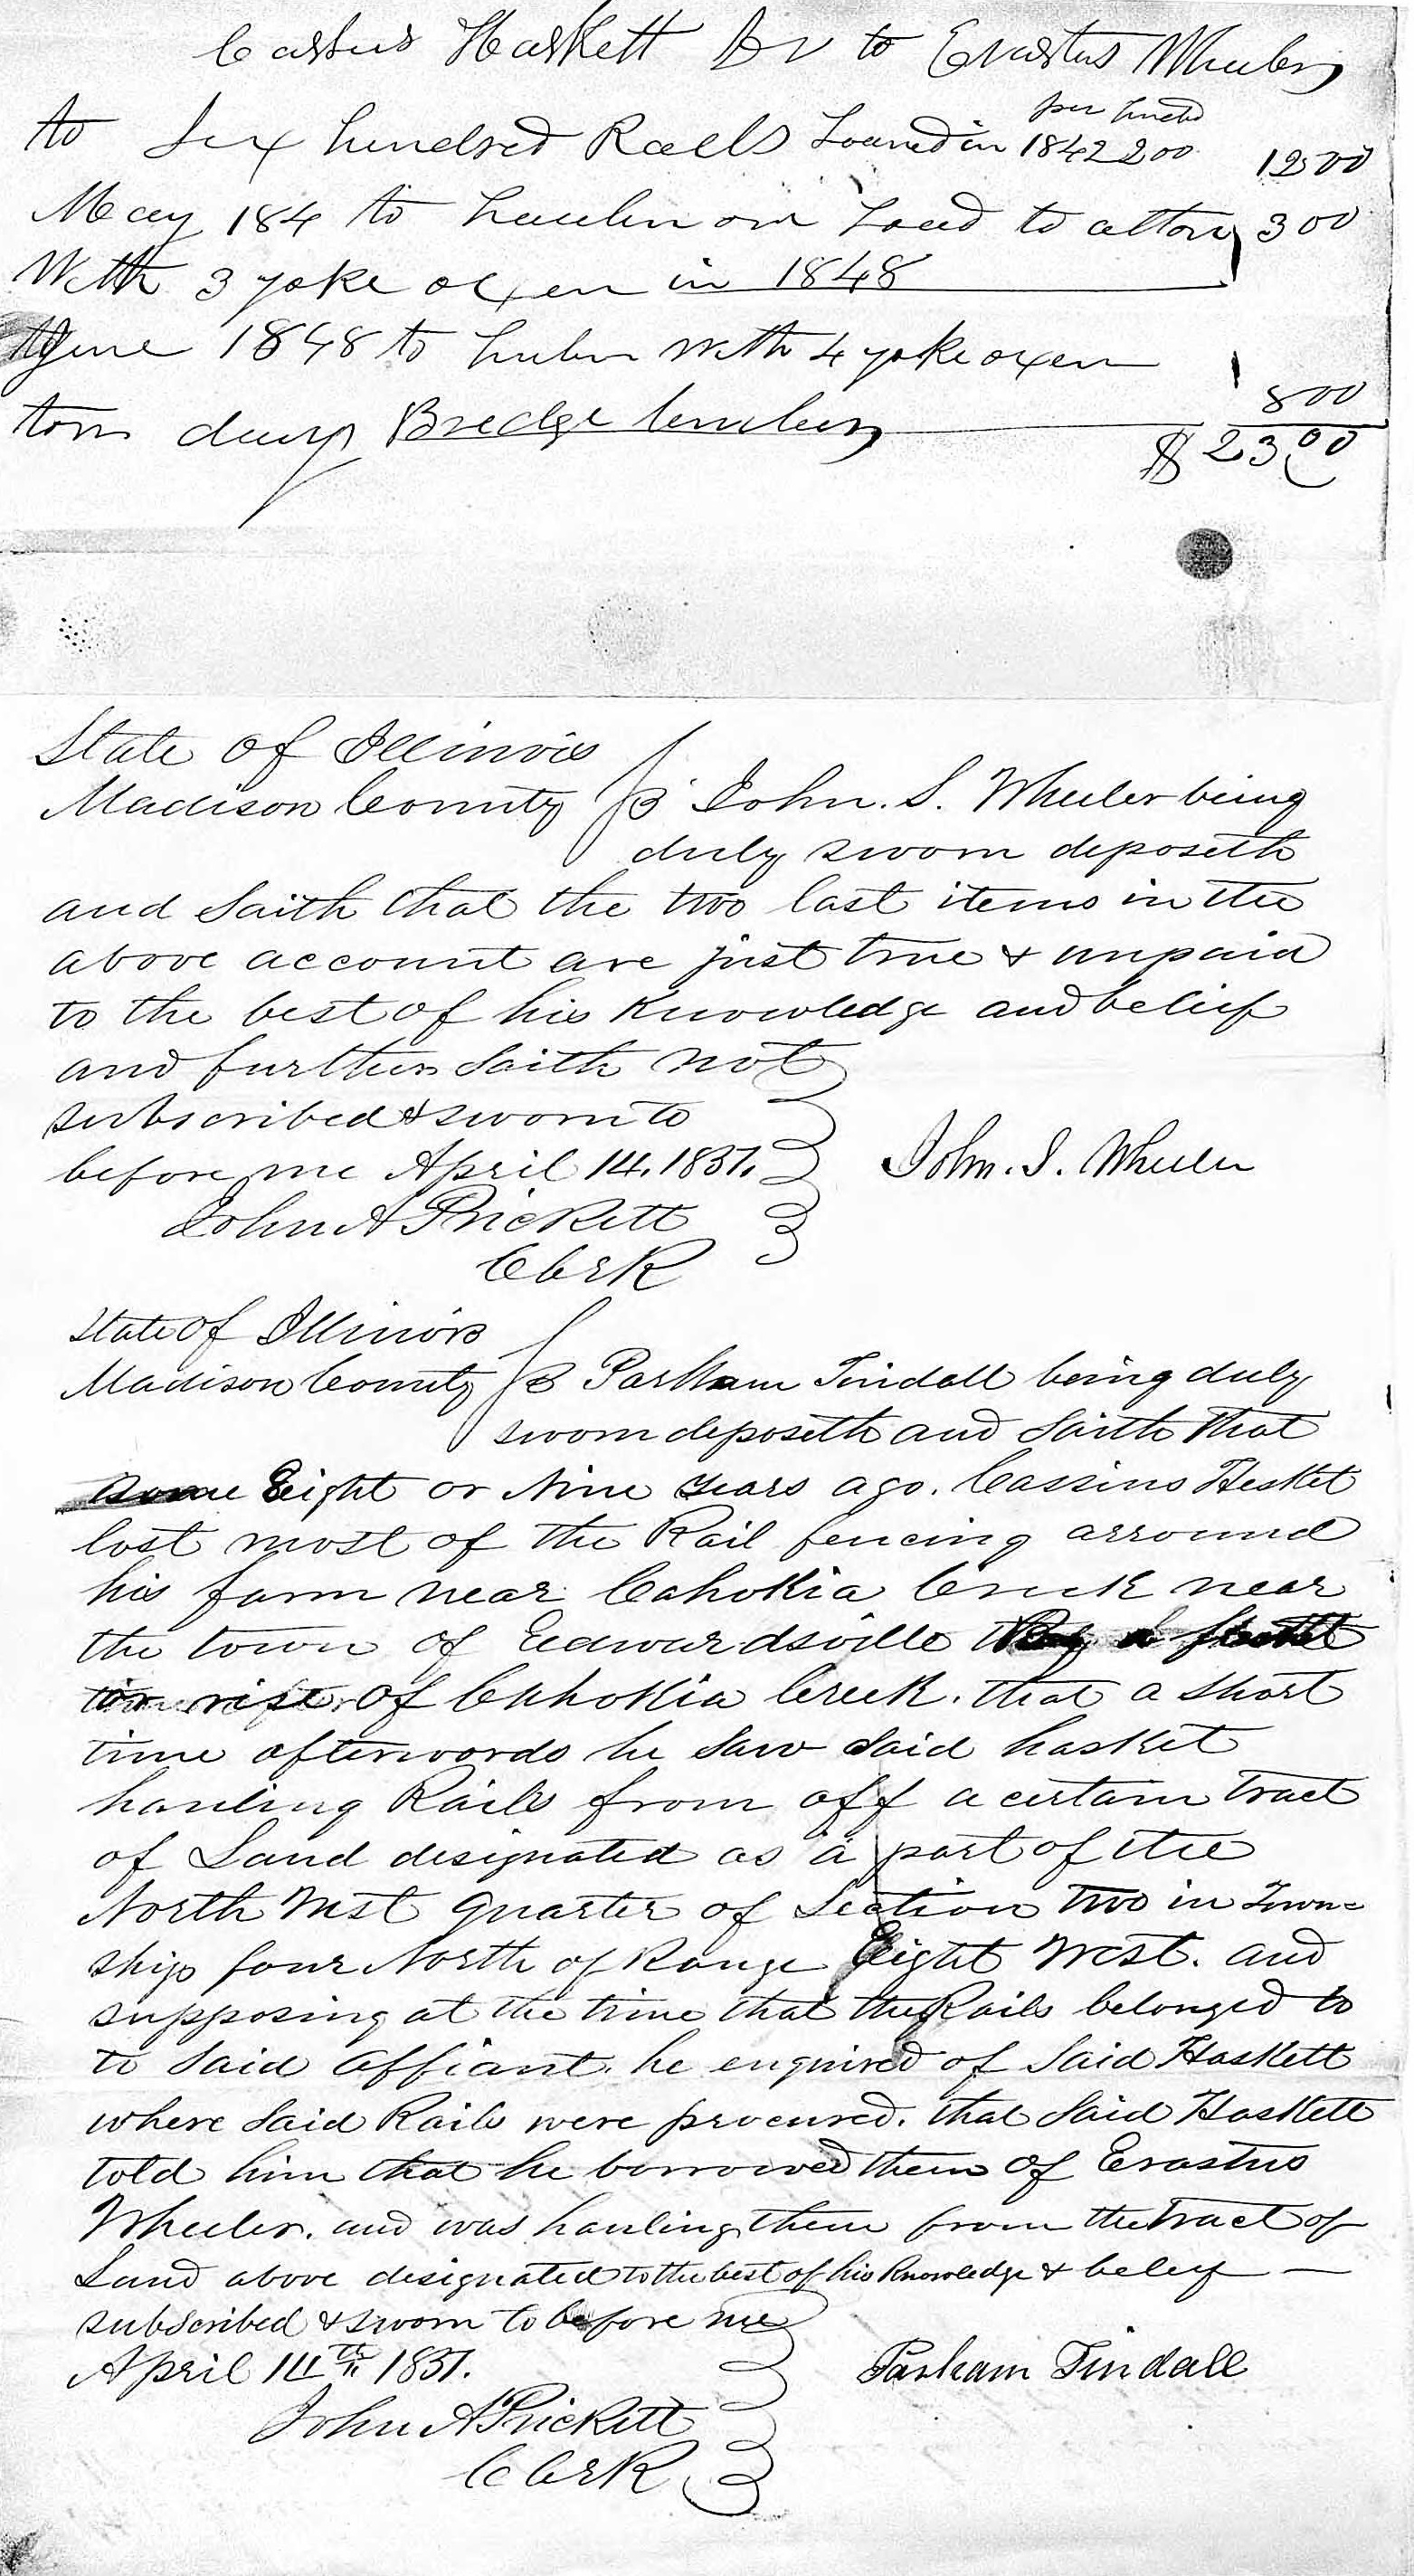 Casbus Haskett Dr to Erastus Wheeler
per hundd
to Six hundred Raels Loaned in 1842 200 1200
May 184 to haulin one Load to alton 300
With 3 yoke oxen in 1848
June 1848 to hulin with 4 yoke oxen
800
tow days Bredge timber
$ 23 00
State of Illinois
Madison County ss John. S. Wheeler being
duly sworn deposeth
and Saith that the two last items in the
above account are just true & unpaid
to the best of his knowledge and belief
and further Saith not
subscribed & sworn to
before me April 14. 1851. John. S. Wheeler
John A Prickett
Clerk
State of Illinois
Madison County ss Parham Tindall being duly
sworn deposeth and Saith that
some Eight or Nine years ago. Cassius Hesket
lost most of the Rail fencing arround
his farm near Cahokia Creek near
the town of Edwardsville
rise of Cahokia Creek. that a short
time afterwords he Saw Said hasket
hauling Rails from off a certain tract
of Land designated as a part of the
North West quarter of Section two in Town=
ship four North of Range Eight West. and
supposing at the time that the Rails belonged to
to Said affiant. he enquired of Said Haskett
where Said Rails were procured. that Said Haskett
told him that he borrowed them of Erastus
Wheeler. and was hauling them from the tract of
Land above designated to the best of his knowledge & beleif —
subscribed & sworn to before me
April 14th 1851. Parham Tindall
John A Prickett
Clerk